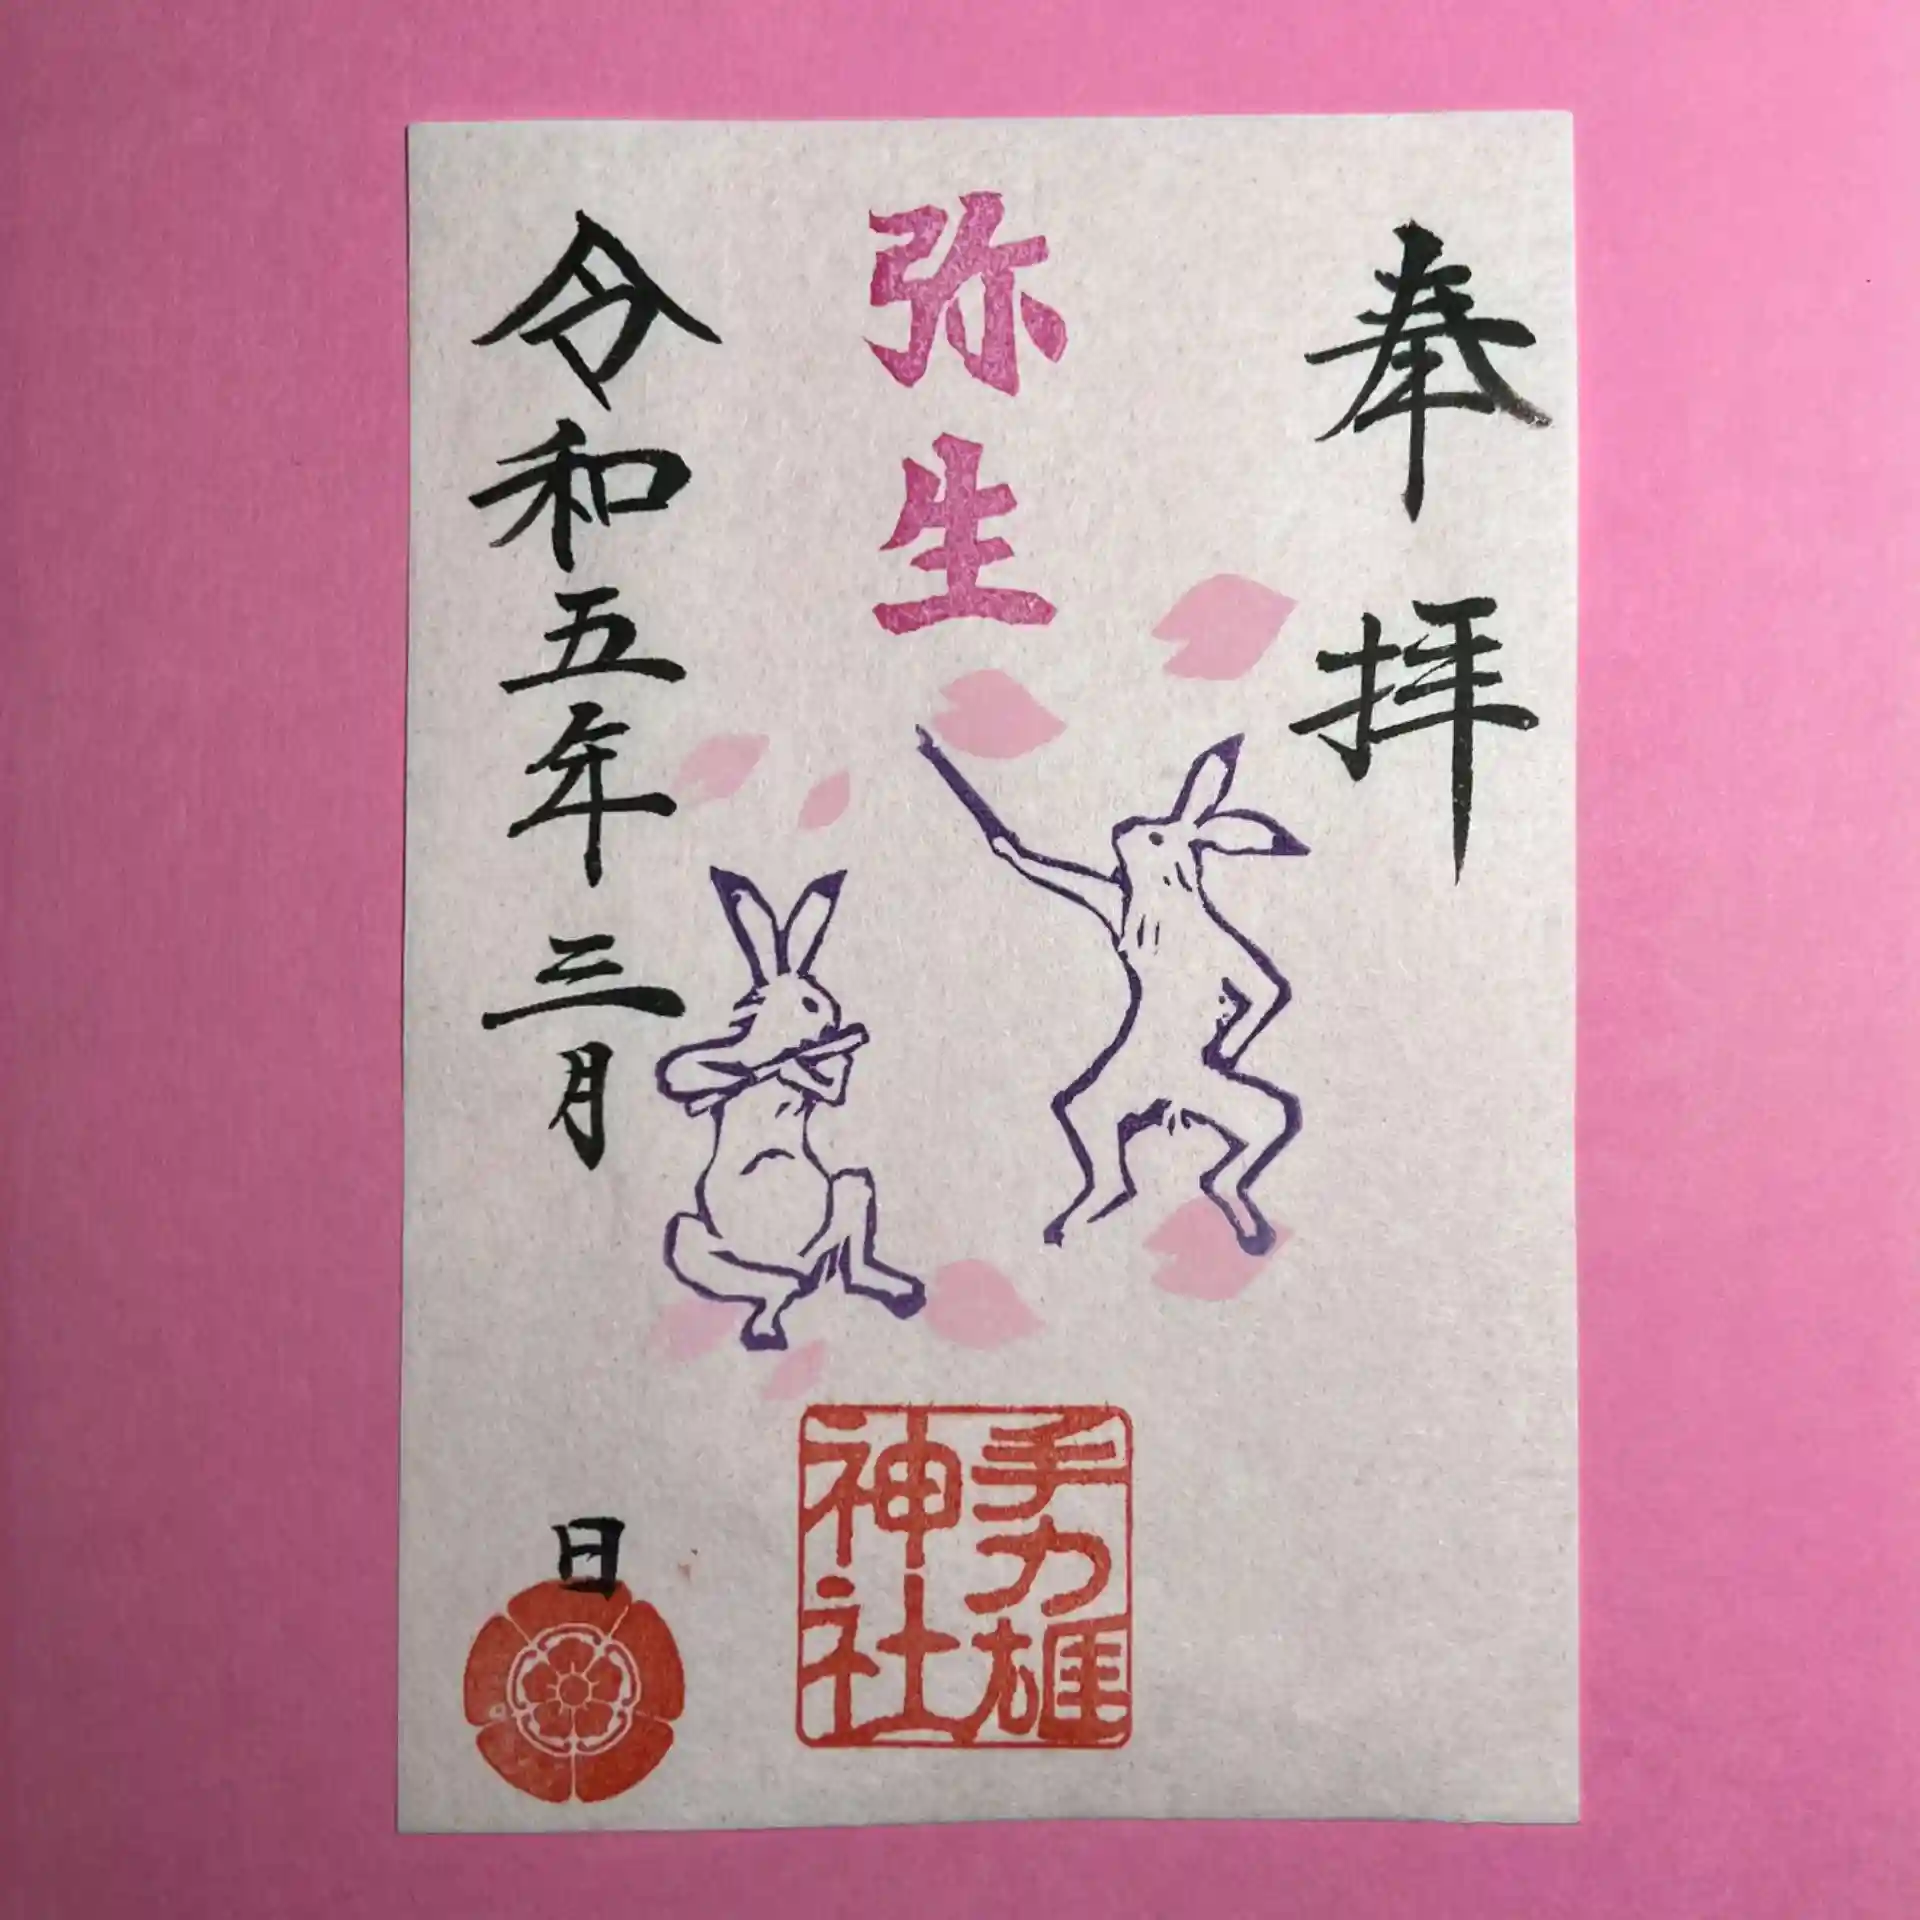 奉拝
弥生
令和五年三月
日
手力雄
神社